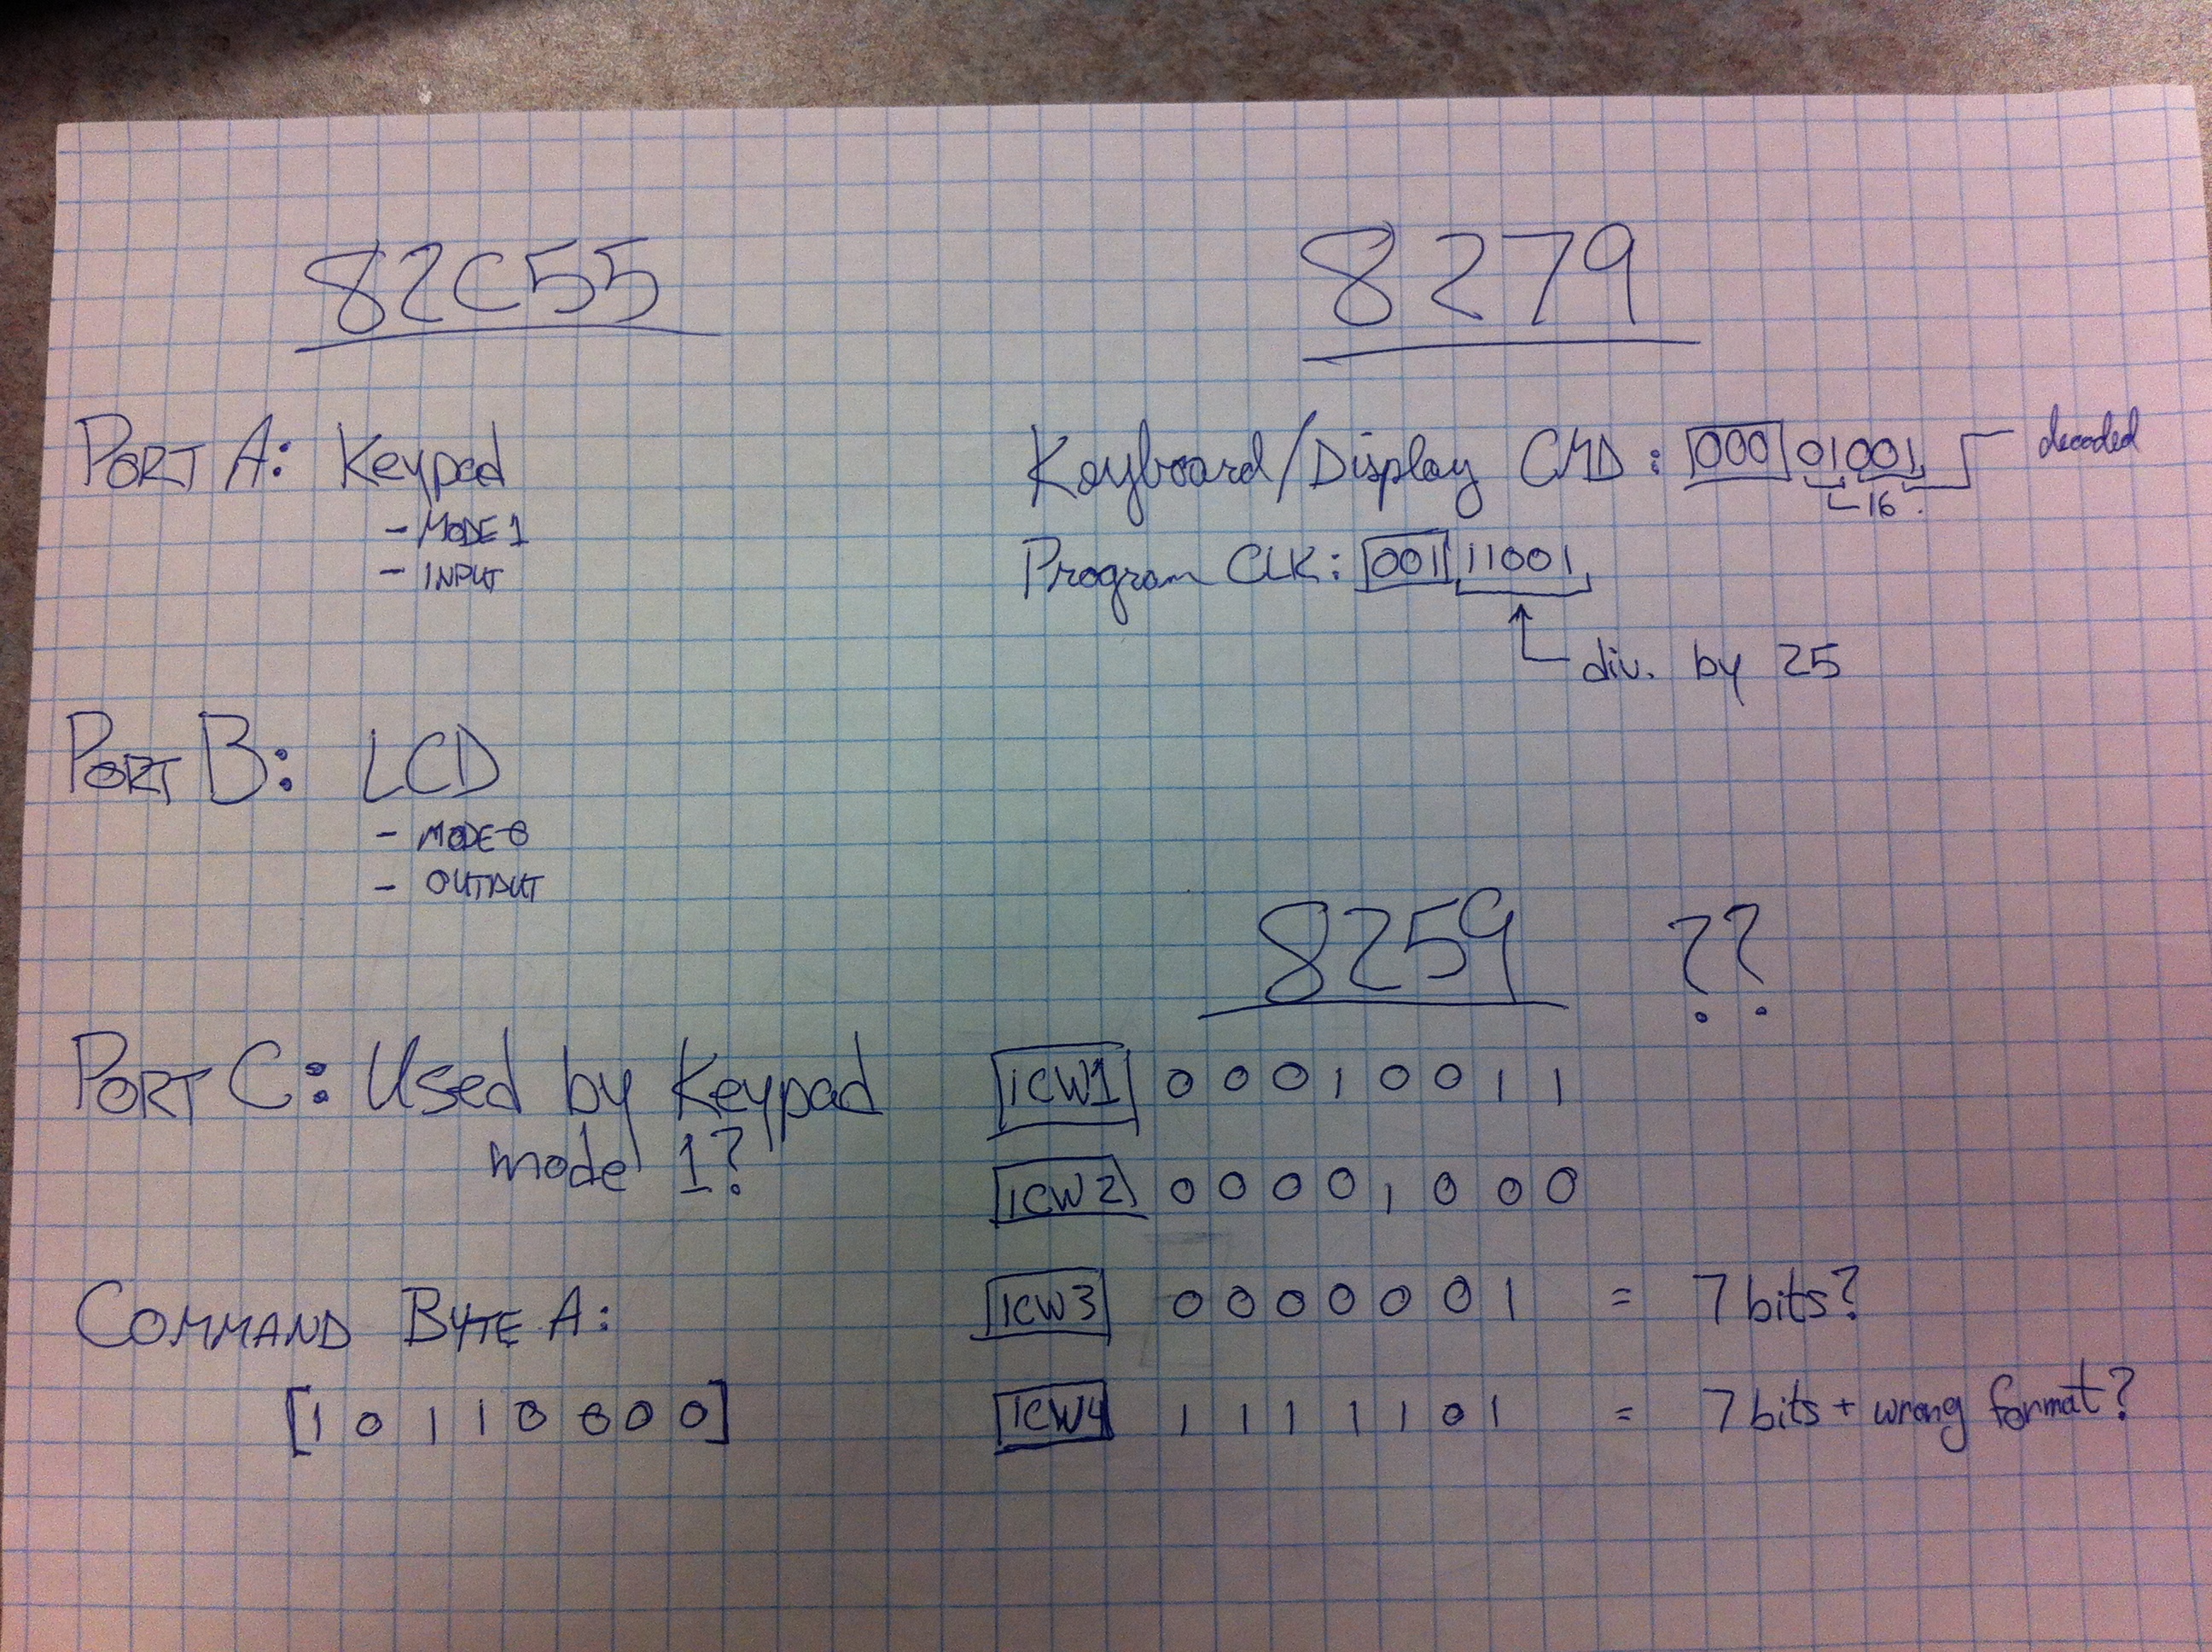 82C55
PORT A: Keypad
- MODE 1
- INPUT
PORT B: LCD
- MODE 0
- OUTPUT
PORT C: Used by Keypad
mode 1?
COMMAND BYTE A:
[1 0 1 1 0 0 0 0]
8279
Keyboard/Display CMD: 000 01001
16
decoded
Program CLK: 001 11001
div. by 25
8259 ??
ICW1 0 0 0 1 0 0 1 1
ICW2 0 0 0 0 1 0 0 0
ICW3 0 0 0 0 0 0 1 = 7 bits?
ICW4 1 1 1 1 1 0 1 = 7 bits + wrong format?